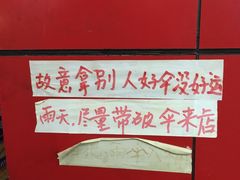 故意拿别人好伞没好运
雨天.尽量带破伞来店